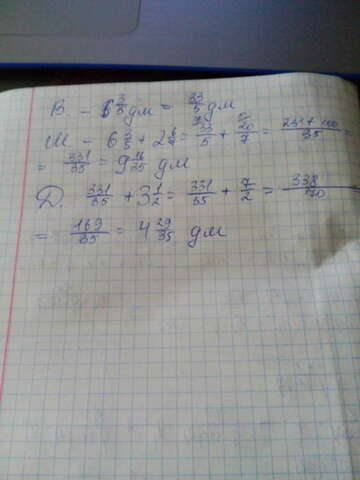 В. – 6 3/5 дм = 33/5 дм
Ш. – 6 3/5 + 2 6/7 = 33/5 + 20/7 = 231 + 100/35 =
= 331/35 = 9 16/35 дм
Д. 331/35 + 3 1/2 = 331/35 + 7/2 = 338/70
= 169/35 = 4 29/35 дм